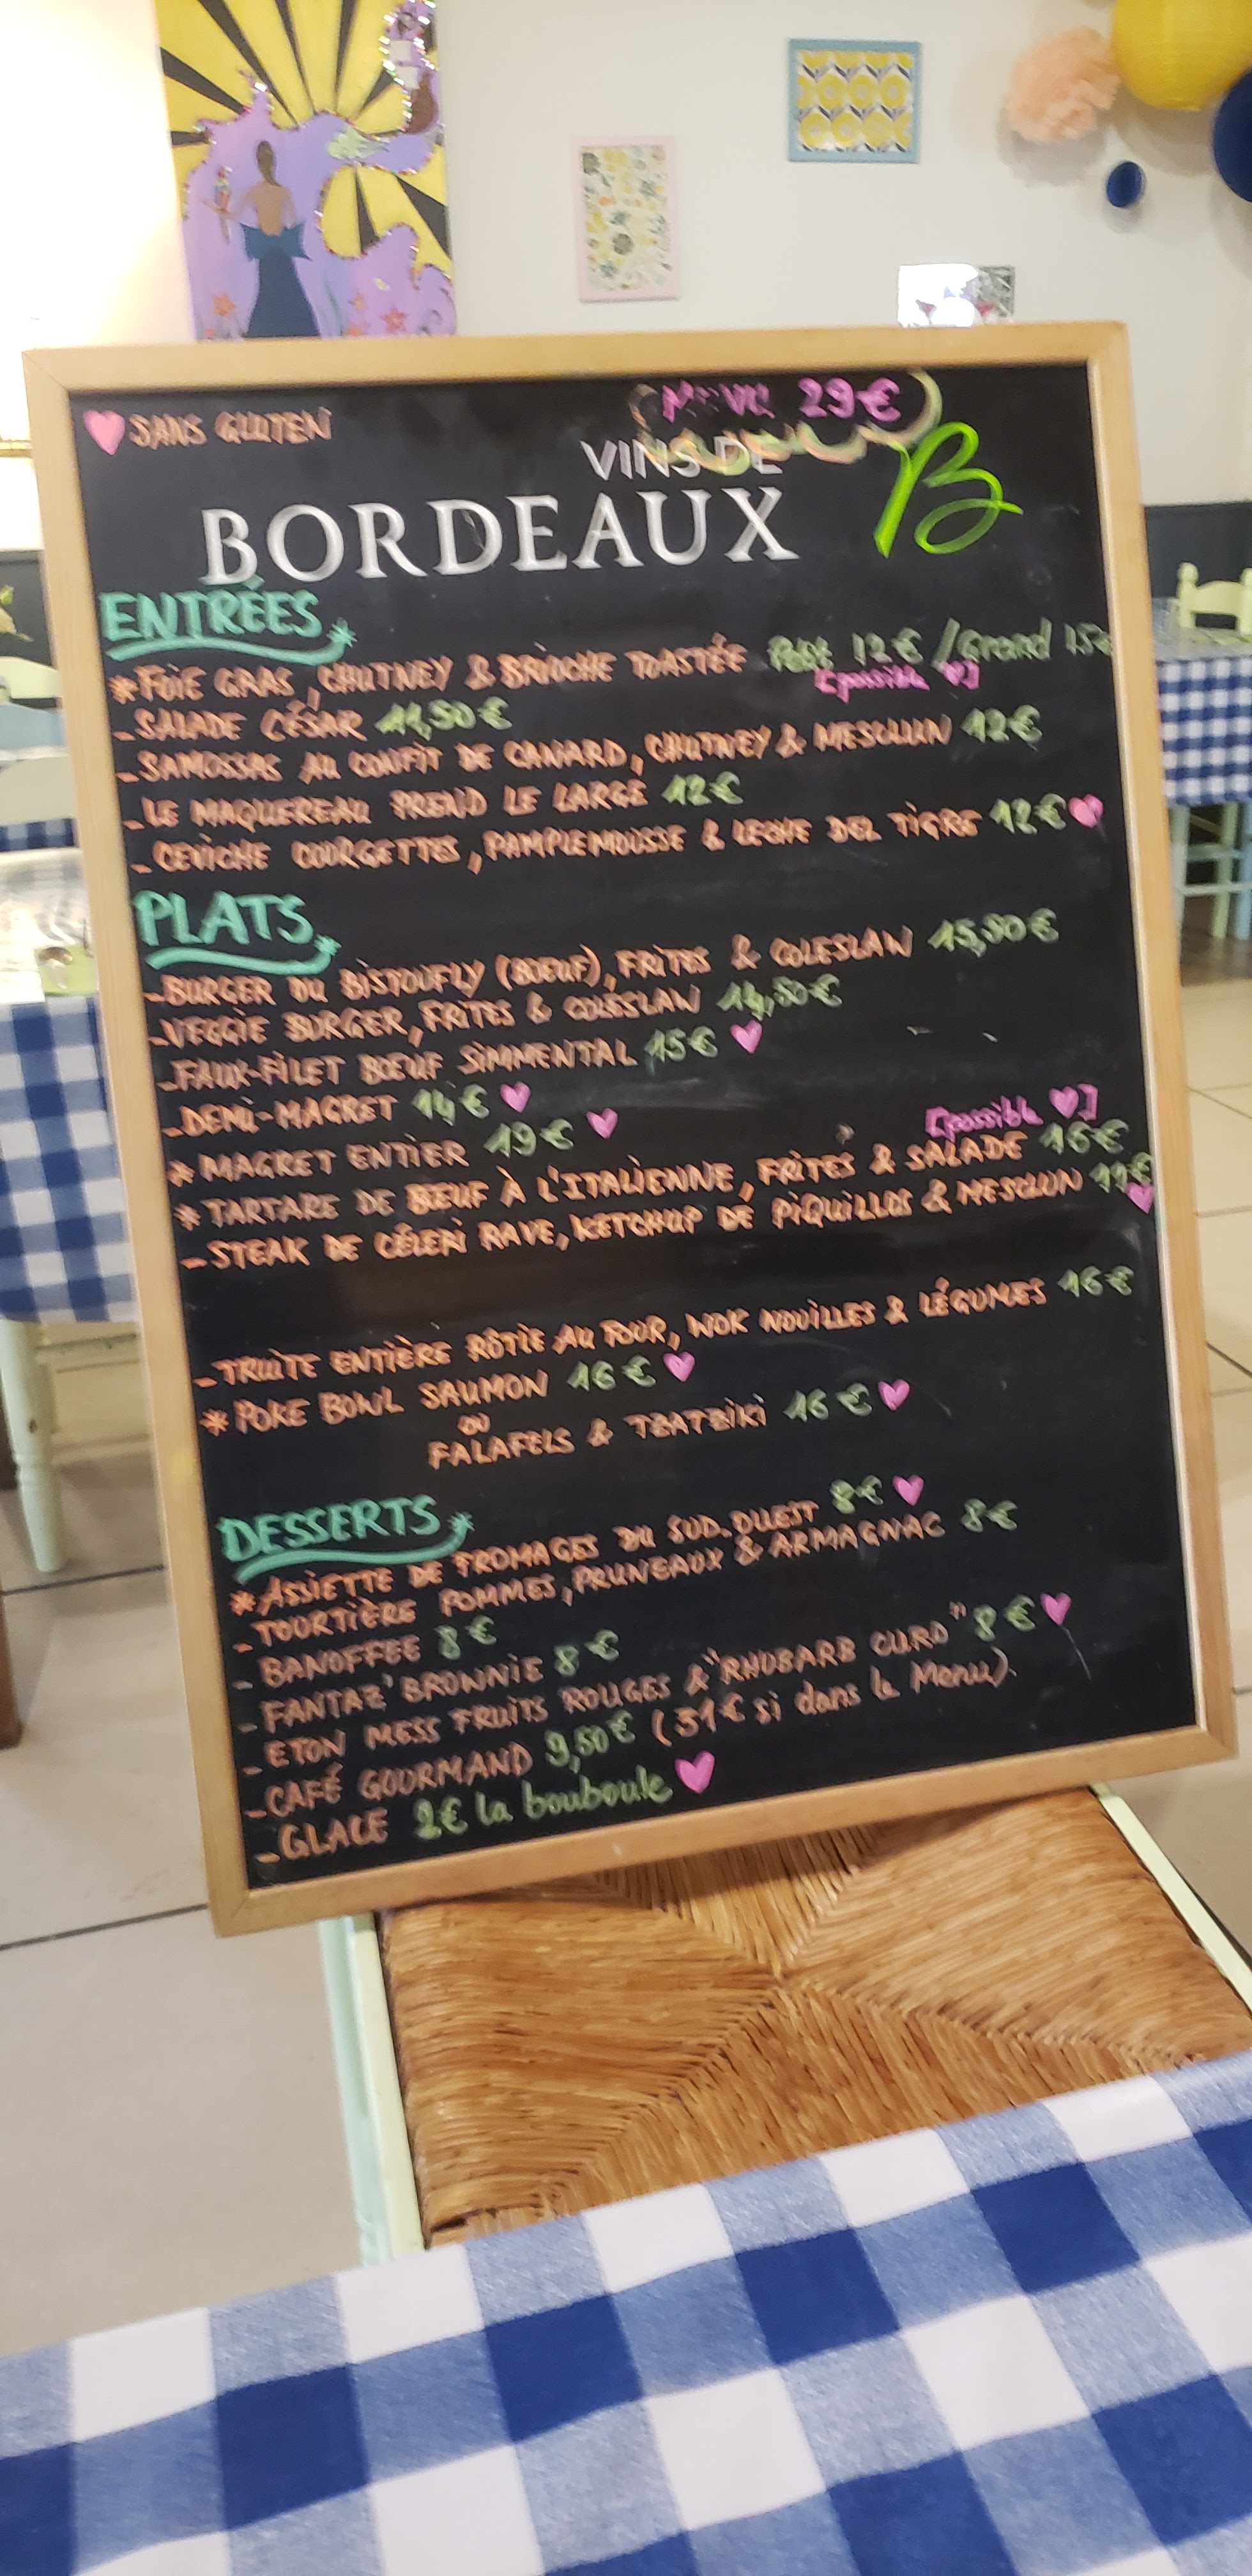 MENU 29€
♥ SANS GLUTEN
VINS DE
BORDEAUX B
ENTRÉES
* FOIE GRAS, CHUTNEY & BRIOCHE TOASTÉE Petit 12€ / Grand 15€
[possible ♥]
- SALADE CÉSAR 11,50€
- SAMOSSAS AU CONFIT DE CANARD, CHUTNEY & MESCLUN 12€
- LE MAQUEREAU PREND LE LARGE 12€
- CEVICHE COURGETTES, PAMPLEMOUSSE & LECHE DEL TIGRE 12€ ♥
PLATS
- BURGER DU BISTOUFLY (BOEUF), FRITES & COLESLAW 15,50€
- VEGGIE BURGER, FRITES & COLESLAW 14,50€
- FAUX-FILET BOEUF SIMMENTAL 15€ ♥
- DEMI-MAGRET 14€ ♥
* MAGRET ENTIER 19€ ♥
[possible ♥]
* TARTARE DE BOEUF À L'ITALIENNE, FRITES & SALADE 16€
- STEAK DE CÉLERI RAVE, KETCHUP DE PIQUILLOS & MESCLUN ♥
- TRUITE ENTIÈRE RÔTIE AU FOUR, WOK NOUILLES & LÉGUMES 16€
* POKE BOWL SAUMON 16€ ♥
OU
FALAFELS & TZATZIKI 16€ ♥
DESSERTS
* ASSIETTE DE FROMAGES DU SUD-OUEST 8€ ♥
- TOURTIÈRE POMMES, PRUNEAUX & ARMAGNAC 8€
- BANOFFEE 8€
- FANTAZ' BROWNIE 8€
- ETON MESS FRUITS ROUGES & "RHUBARB CURD" 8€ ♥
- CAFÉ GOURMAND 9,50€ (31€ si dans le Menu).
- GLACE 2€ la bouboule ♥